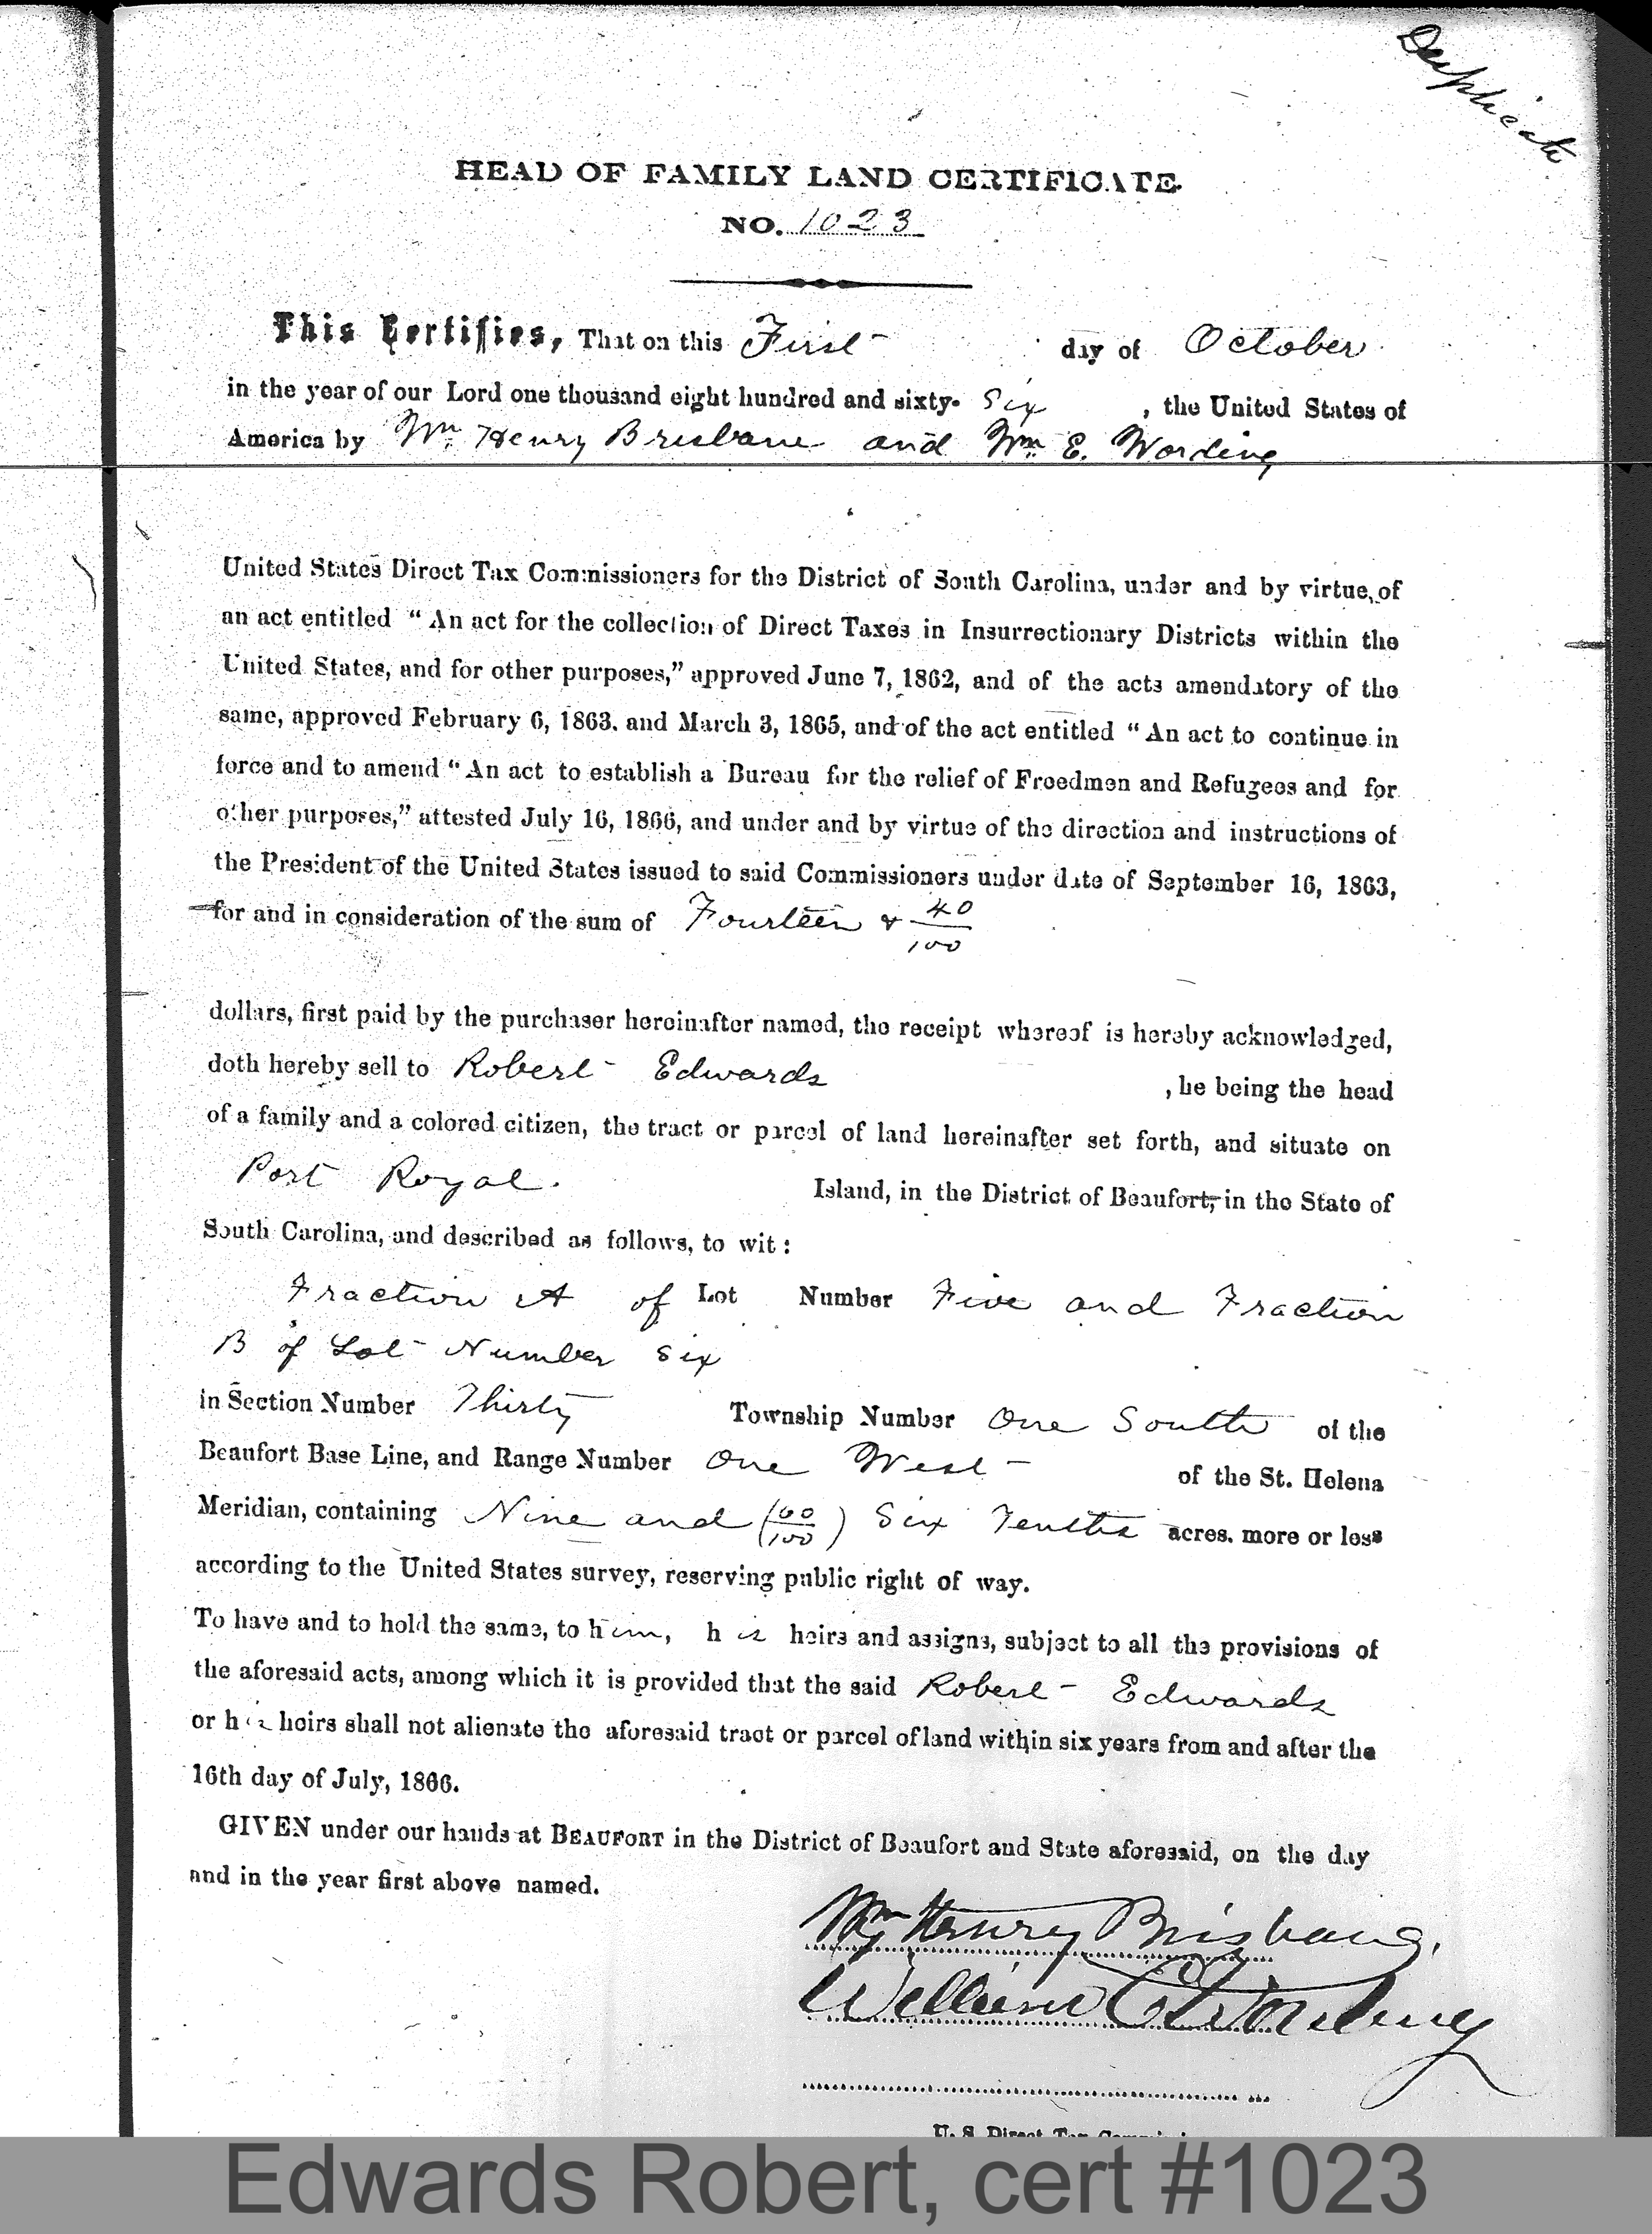 Duplicate
HEAD OF FAMILY LAND CERTIFICATE.
NO. 1023
This Certifies, That on this First day of October
in the year of our Lord one thousand eight hundred and sixty- Six , the United States of
America by Wm. Henry Brisbane and Wm. E. Wording
United States Direct Tax Commissioners for the District of South Carolina, under and by virtue, of
an act entitled “ An act for the collection of Direct Taxes in Insurrectionary Districts within the
United States, and for other purposes,” approved June 7, 1862, and of the acts amendatory of the
same, approved February 6, 1863, and March 3, 1865, and of the act entitled “ An act to continue in
force and to amend “ An act to establish a Bureau for the relief of Freedmen and Refugees and for
other purposes,” attested July 16, 1866, and under and by virtue of the direction and instructions of
the President of the United States issued to said Commissioners under date of September 16, 1863,
for and in consideration of the sum of Fourteen & 40/100
dollars, first paid by the purchaser hereinafter named, the receipt whereof is hereby acknowledged,
doth hereby sell to Robert Edwards , he being the head
of a family and a colored citizen, the tract or parcel of land hereinafter set forth, and situate on
Port Royal. Island, in the District of Beaufort, in the State of
South Carolina, and described as follows, to wit :
Fraction A of Lot Number Five and Fraction
B of Lot Number Six
in Section Number Thirty Township Number One South of the
Beaufort Base Line, and Range Number One West of the St. Helena
Meridian, containing Nine and (60/100) Six Tenths acres. more or less
according to the United States survey, reserving public right of way.
To have and to hold the same, to him, his heirs and assigns, subject to all the provisions of
the aforesaid acts, among which it is provided that the said Robert Edwards
or his heirs shall not alienate the aforesaid tract or parcel of land within six years from and after the
16th day of July, 1866.
GIVEN under our hands at BEAUFORT in the District of Beaufort and State aforesaid, on the day
and in the year first above named.
Wm Henry Brisbane.
William E. Wording
U. S. Direct Tax
Edwards Robert, cert #1023